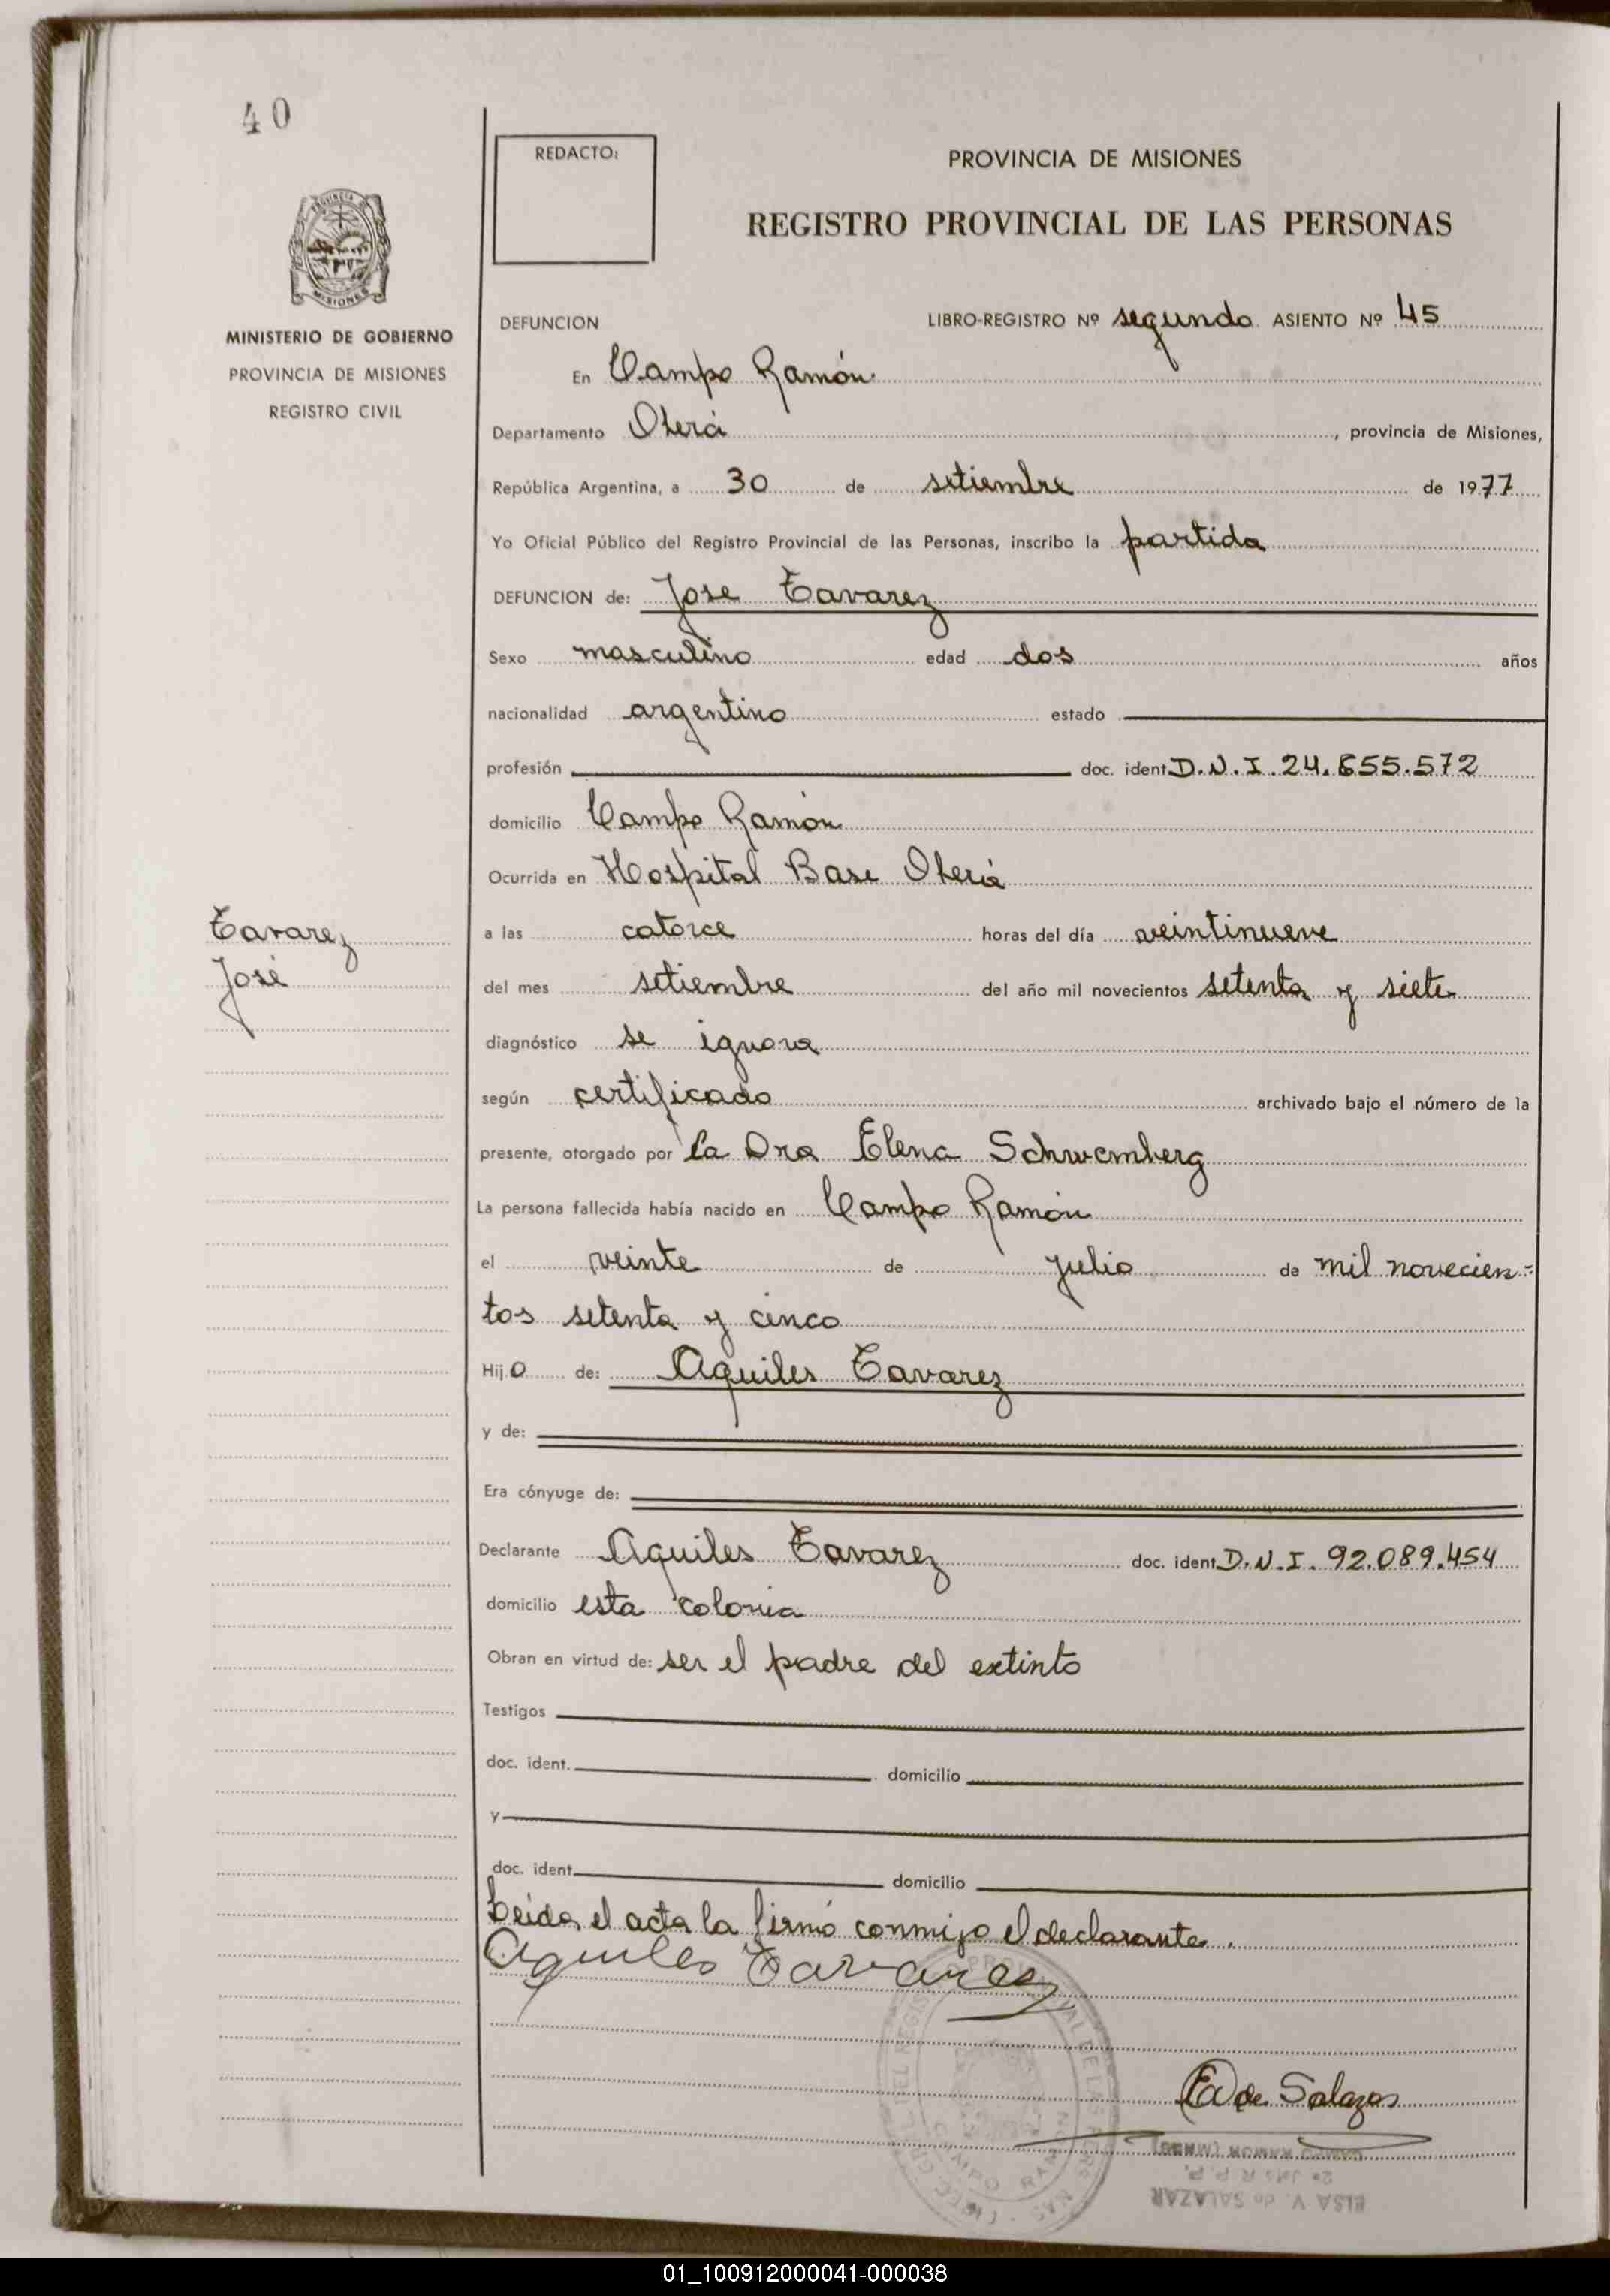 40
REDACTO:
PROVINCIA DE MISIONES
REGISTRO PROVINCIAL DE LAS PERSONAS
MISIONES
MINISTERIO DE GOBIERNO
PROVINCIA DE MISIONES
REGISTRO CIVIL
DEFUNCION LIBRO-REGISTRO Nº segundo ASIENTO Nº 45
En Campo Ramón
Departamento Oberá, provincia de Misiones,
República Argentina, a 30 de setiembre de 1977
Yo Oficial Público del Registro Provincial de las Personas, inscribo la partida
DEFUNCION de: Jose Tavarez
Sexo masculino edad dos años
nacionalidad argentino estado
profesión doc. ident. D.N.I. 24.655.572
domicilio Campo Ramón
Ocurrida en Hospital Base Oberá
Tavarez
José
a las catorce horas del día veintinueve
del mes setiembre del año mil novecientos setenta y siete
diagnóstico se ignora
según certificado archivado bajo el número de la
presente, otorgado por La Dra Elena Schwemberg
La persona fallecida había nacido en Campo Ramón
el veinte de julio de mil novecien=
tos setenta y cinco
Hijo de: Aquiles Tavarez
y de:
Era cónyuge de:
Declarante Aquiles Tavarez doc. ident. D.N.I. 92.089.454
domicilio esta colonia
Obran en virtud de: ser el padre del extinto
Testigos
doc. ident. domicilio
y
doc. ident. domicilio
Leida el acta la firmó conmigo el declarante.
Aquiles Tavarez
E de Salazar
CAMPO RAMON (MNES)
ELSA V. de SALAZAR
01_100912000041-000038